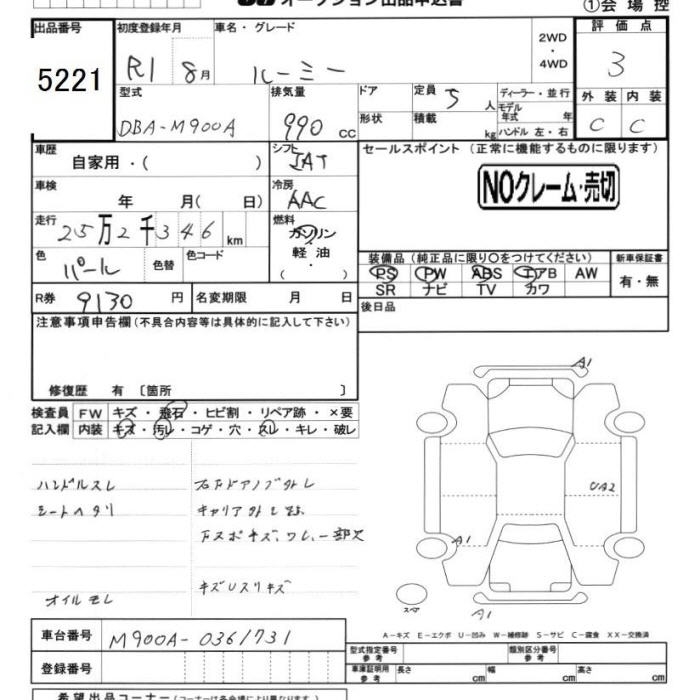 オークション出品申込書
①会場控
出品番号 初度登録年月 車名・グレード 2WD・4WD 評価点
5221 R1 8月 ルーミー 3
型式 排気量 ドア 定員 5人 ディーラー・並行 外装 内装
DBA-M900A 990cc 形状 積載 kg モデル年式 年 ハンドル 左・右 C C
車歴 自家用・( ) シフト IAT セールスポイント (正常に機能するものに限ります)
車検 年 月( 日) 冷房 AAC NOクレーム・売切
走行 25万2千346km 燃料 ガソリン 軽油 ・( )
色 パール 色替 色コード 装備品 (純正品に限り○をつけてください) 新車保証書
PS PW ABS エアB AW 有・無
SR ナビ TV カワ
R券 9130円 名変期限 月 日 後日品
注意事項申告欄 (不具合内容等は具体的に記入して下さい)
修復歴 有 〔箇所 〕
検査員 FW キズ・飛石・ヒビ割・リペア跡・×要
記入欄 内装 キズ・汚レ・コゲ・穴・スレ・キレ・破レ
ハンドルスレ
シートヘタリ キャリア外し跡
キズUスリキズ
オイルモレ
A1
UA2
A1
スペア
A1
A-キズ E-エクボ U-凹み W-補修跡 S-サビ C-腐食 XX-交換済
車台番号 M900A-0361731 型式指定番号 参考 類別区分番号 参考
登録番号 車庫証明用 参考 長さ cm 幅 cm 高さ cm
希望出品コーナー